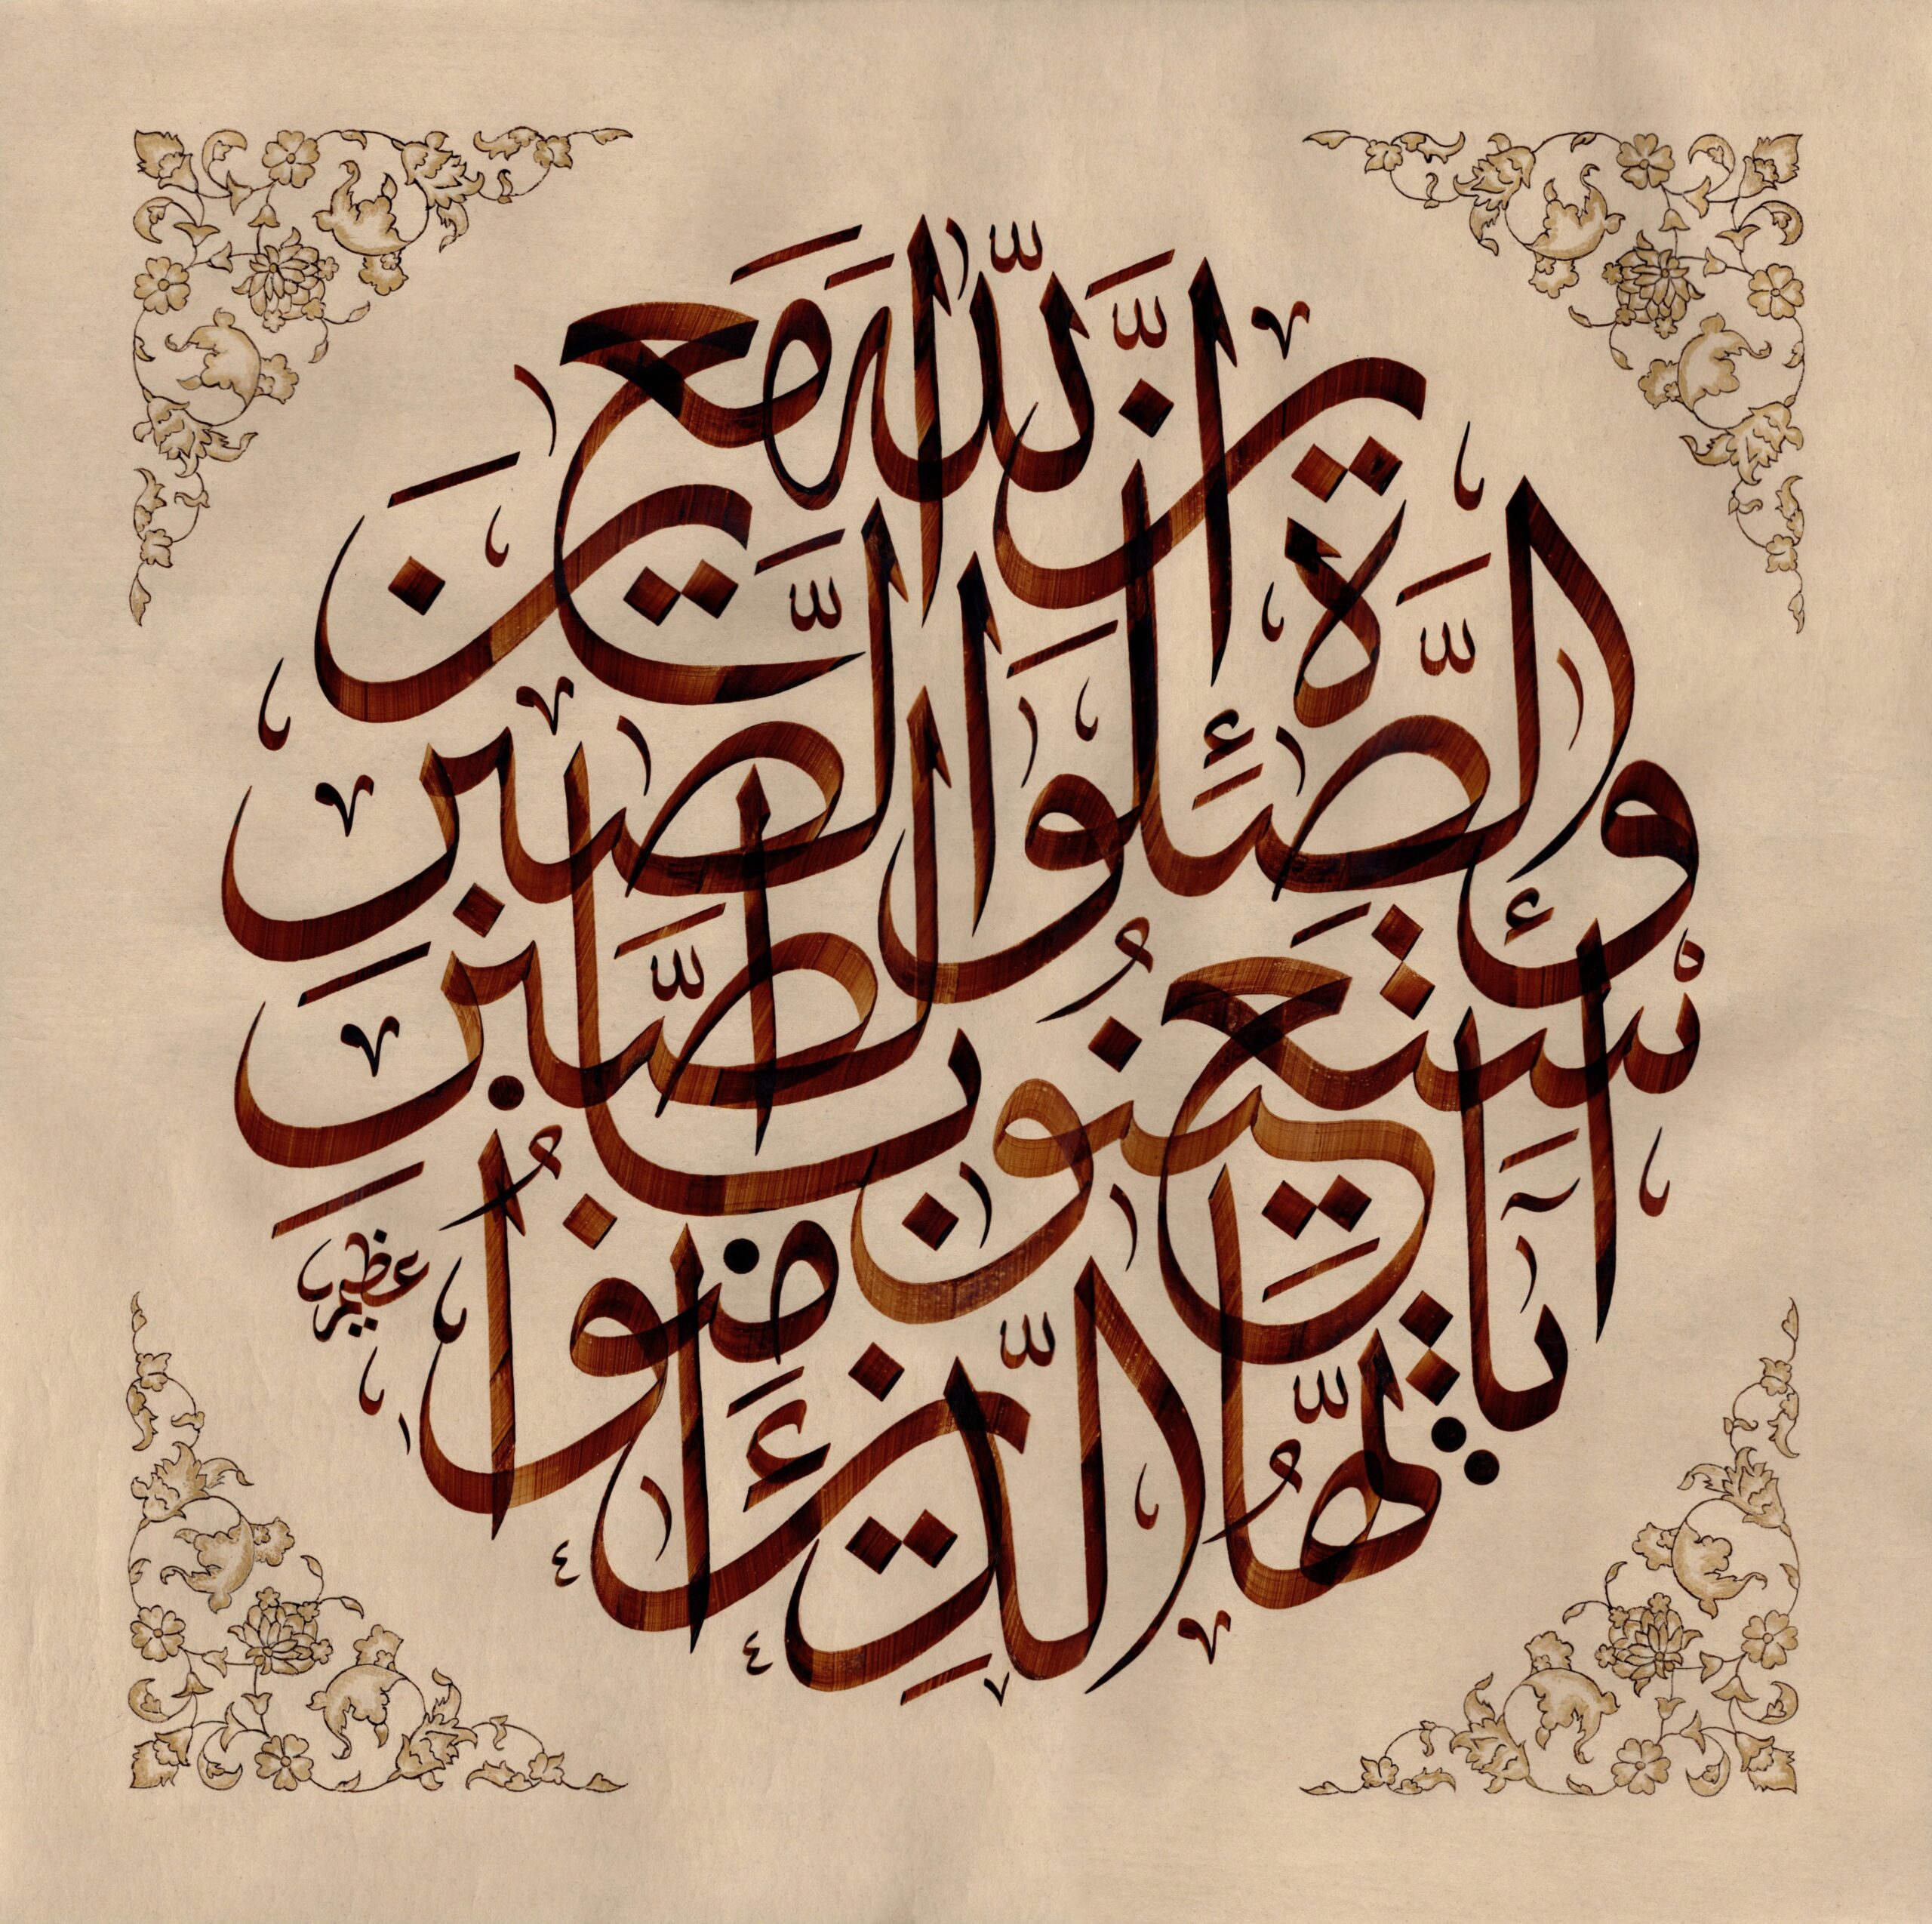 يَا أَيُّهَا الَّذِينَ ءَامَنُوا
اسْتَعِينُوا بِالصَّبْرِ
وَالصَّلَوٰةِ
إِنَّ اللَّهَ مَعَ الصَّٰبِرِينَ
عظیم